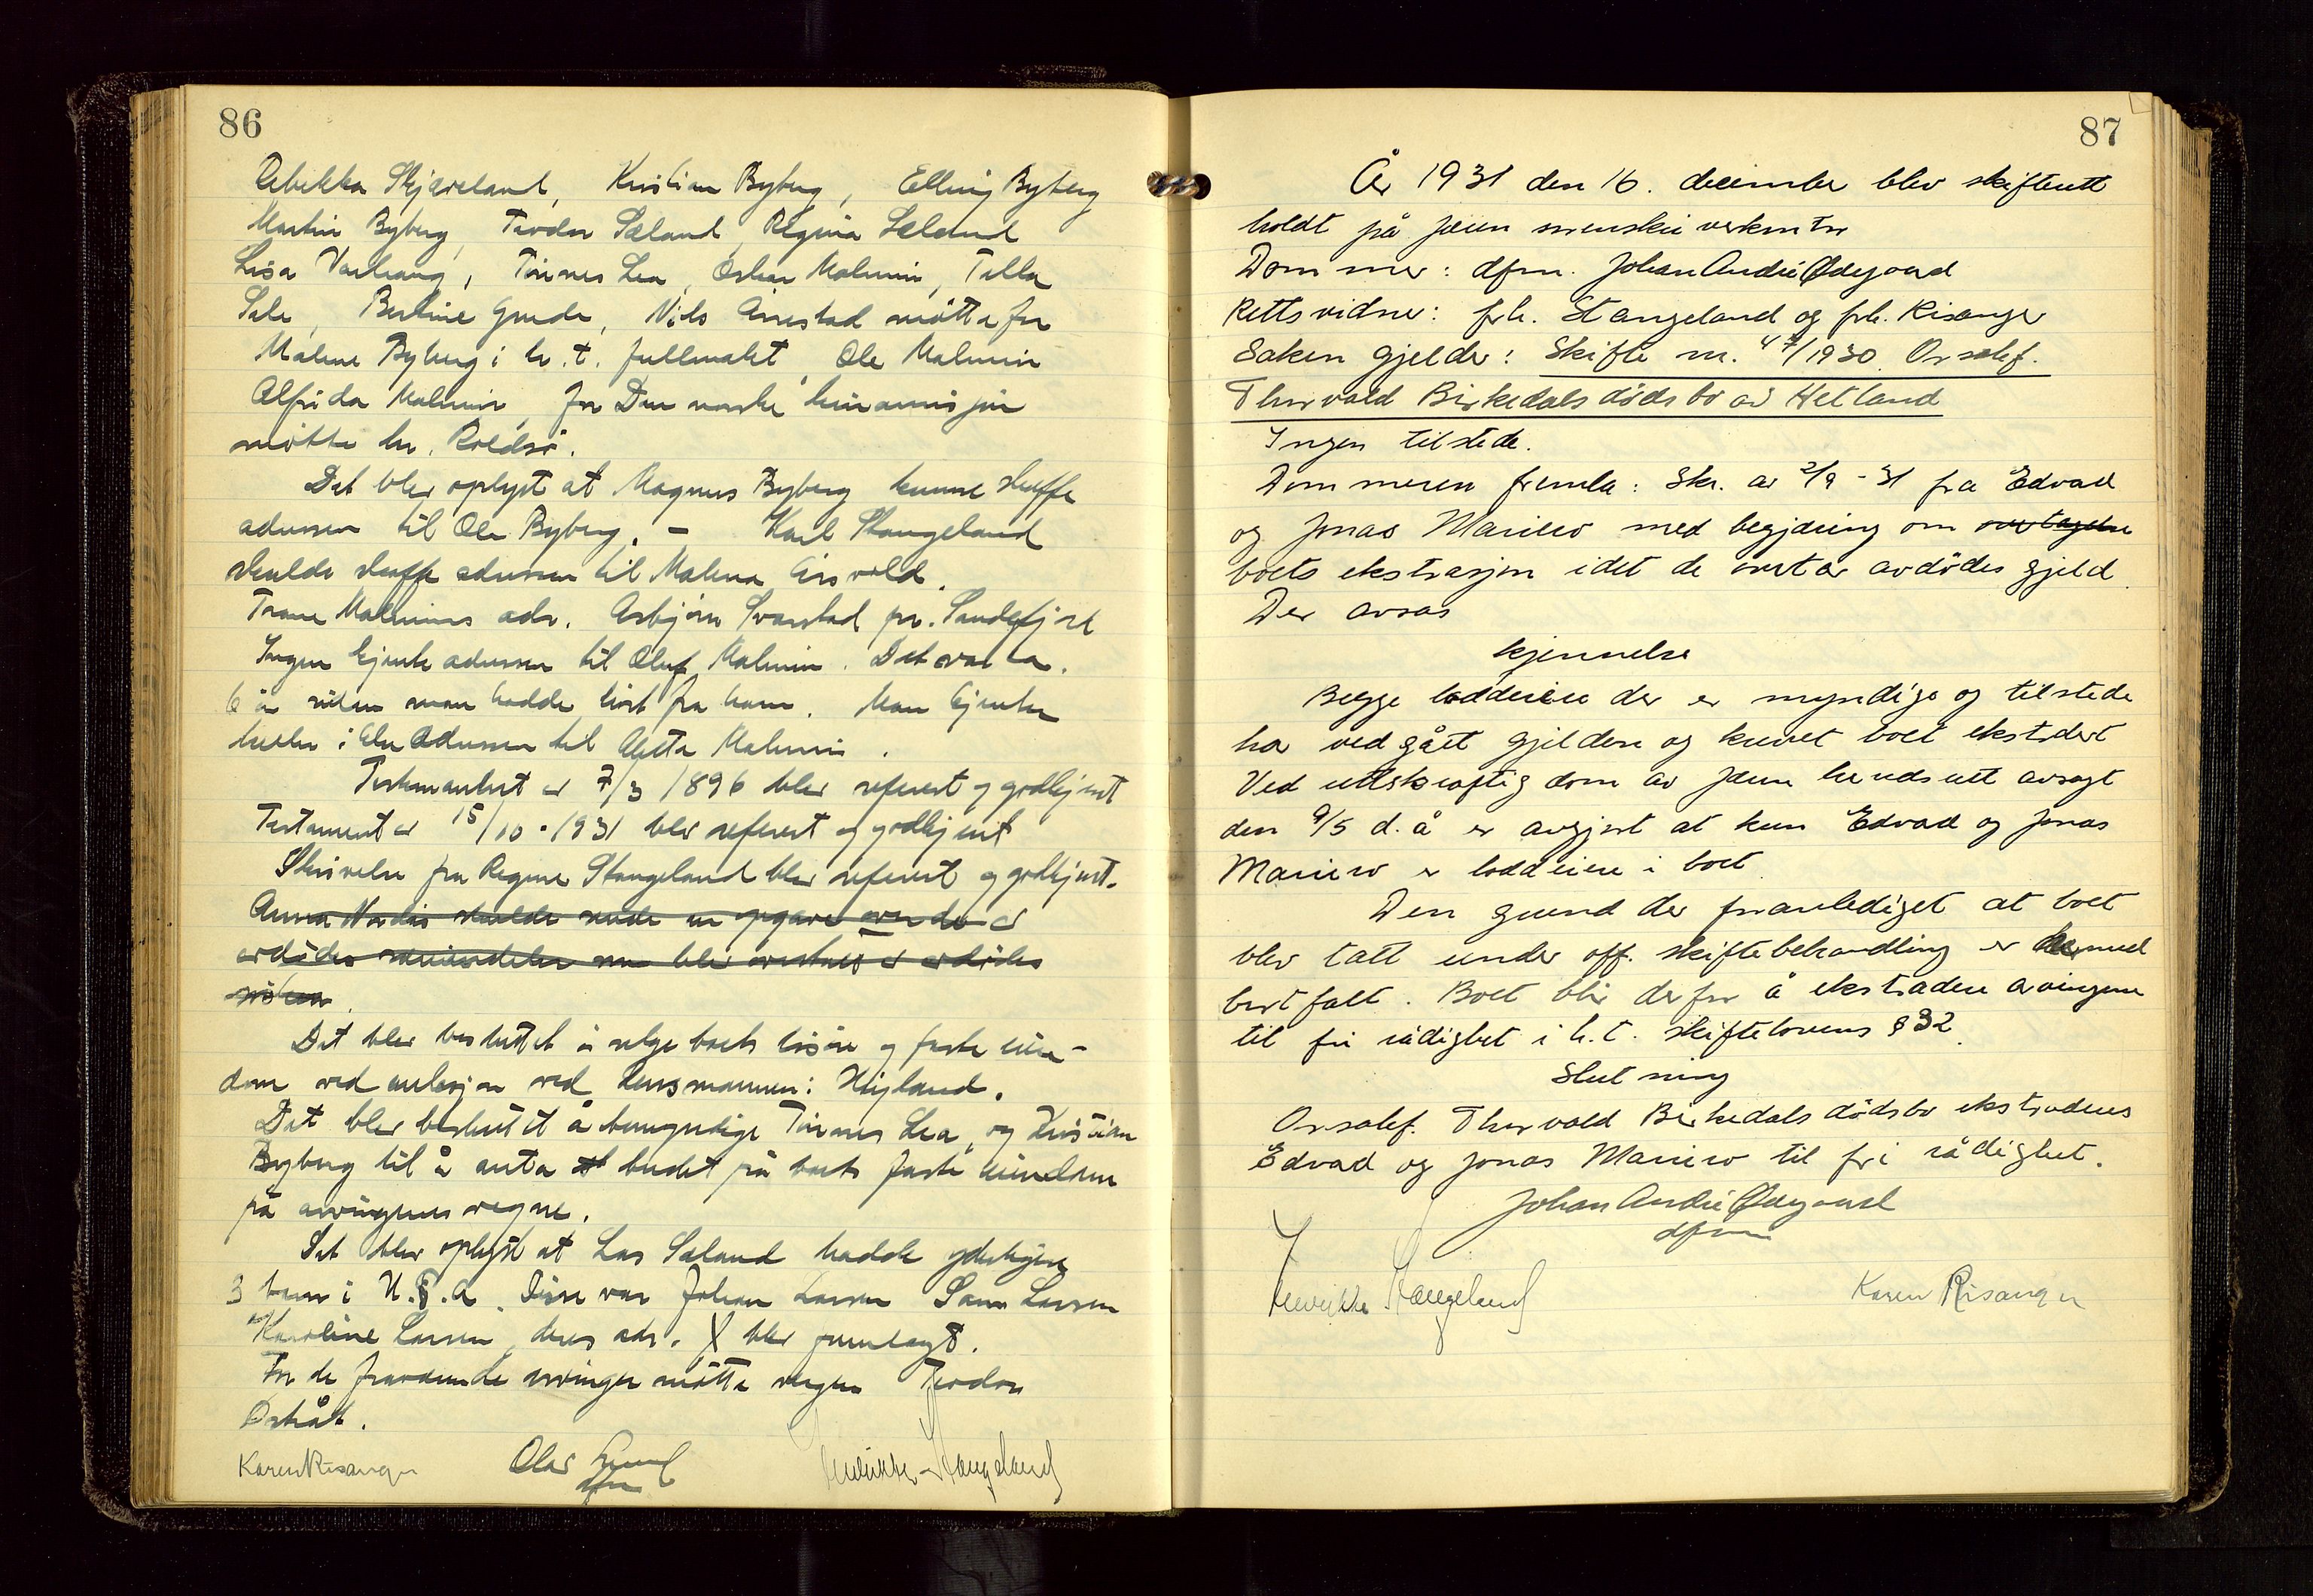 86
Rebekka Skjæveland, Kristian Byberg, Elling Byberg
Martin Byberg, Teodor Sæland, Regina Sæland
Lisa Varhaug, Tønnes Lea, Oskar Malmin, Tilla
Sele, Bertine Grude, Nils Årrestad møtte for
Malene Byberg i h.t. fullmakt, Ole Malmin
Alfrida Malmin, for Den norske kinamisjon
møtte hr. Roldsø.
Det blev oplyst at Magnus Byberg kunne skaffe
adressen til Ole Byberg. – Karl Stangeland
skulde skaffe adressen til Malena
Malmins adr. Asbjørn Svarstad pr. Sandefjord
Ingen kjente adressen til Oluf Malmin. Det var ca.
6 år siden man hadde hørt fra ham. Man kjente
heller ikke adressen til Malmin.
Testamentet av 7/3 1896 blev referert og godkjent
Testament av 15/10-1931 blev referert og godkjent
Skrivelse fra Regine Stangeland blev referert og godkjent.
Anna skulde sende en opgave over de av
avdødes som blev av avdødes
Det blev besluttet å selge boets løsøre og faste eien-
dom ved auksjon ved lensmannen i Høyland.
Det blev besluttet å bemyndige Tønnes Lea, og Kristian
Byberg til å anta budet på boets faste eiendom
på arvingenes vegne.
Det blev oplyst at Lars Sæland hadde yderligere
3 barn i U.S.A. Disse var Johan Larsen Sam Larsen
Karoline Larsen, deres adr. blev fremlagt.
For de fraværende arvinger møtte vergen Teodor
Østråt.
Karen Risanger Olav Henrikke Stangeland
87
År 1931 den 16. december blev skifterett
holdt på Jæren sorenskriverkontor
Dommer: dfm. Johan André Ødegaard
Rettsvidner: frk. Stangeland og frk. Risanger
Saken gjelder: Skifte nr. 47/1930. Ovr.selsf.
Thorvald Birkedals dødsbo av Hetland
Ingen tilstede.
Dommeren fremla: Skr. av 2/9-31 fra Edvard
og Jonas Mariero med begjæring om overtagelse
boets ekstrasjon idet de overtar avdødes gjeld.
Der avsas
kjennelse
Begge loddeiere der er myndige og tilstede
har vedgått gjelden og krevet boet ekstradert
Ved rettskraftig dom av Jæren herredsrett avsagt
den 9/5 d.å er avgjort at kun Edvard og Jonas
Mariero er loddeiere i boet.
Den grunn der foranlediget at boet
blev tatt under off. skiftebehandling er dermed
bortfalt. Boet blir derfor å ekstradere arvingene
til fri rådighet i h.t. skiftelovens § 32.
Slutning
Thorvald Birkedals dødsbo ekstraderes
Edvard og Jonas Mariero til fri rådighet.
Johan André Ødegaard
dfm
Henrikke Stangeland Karen Risanger